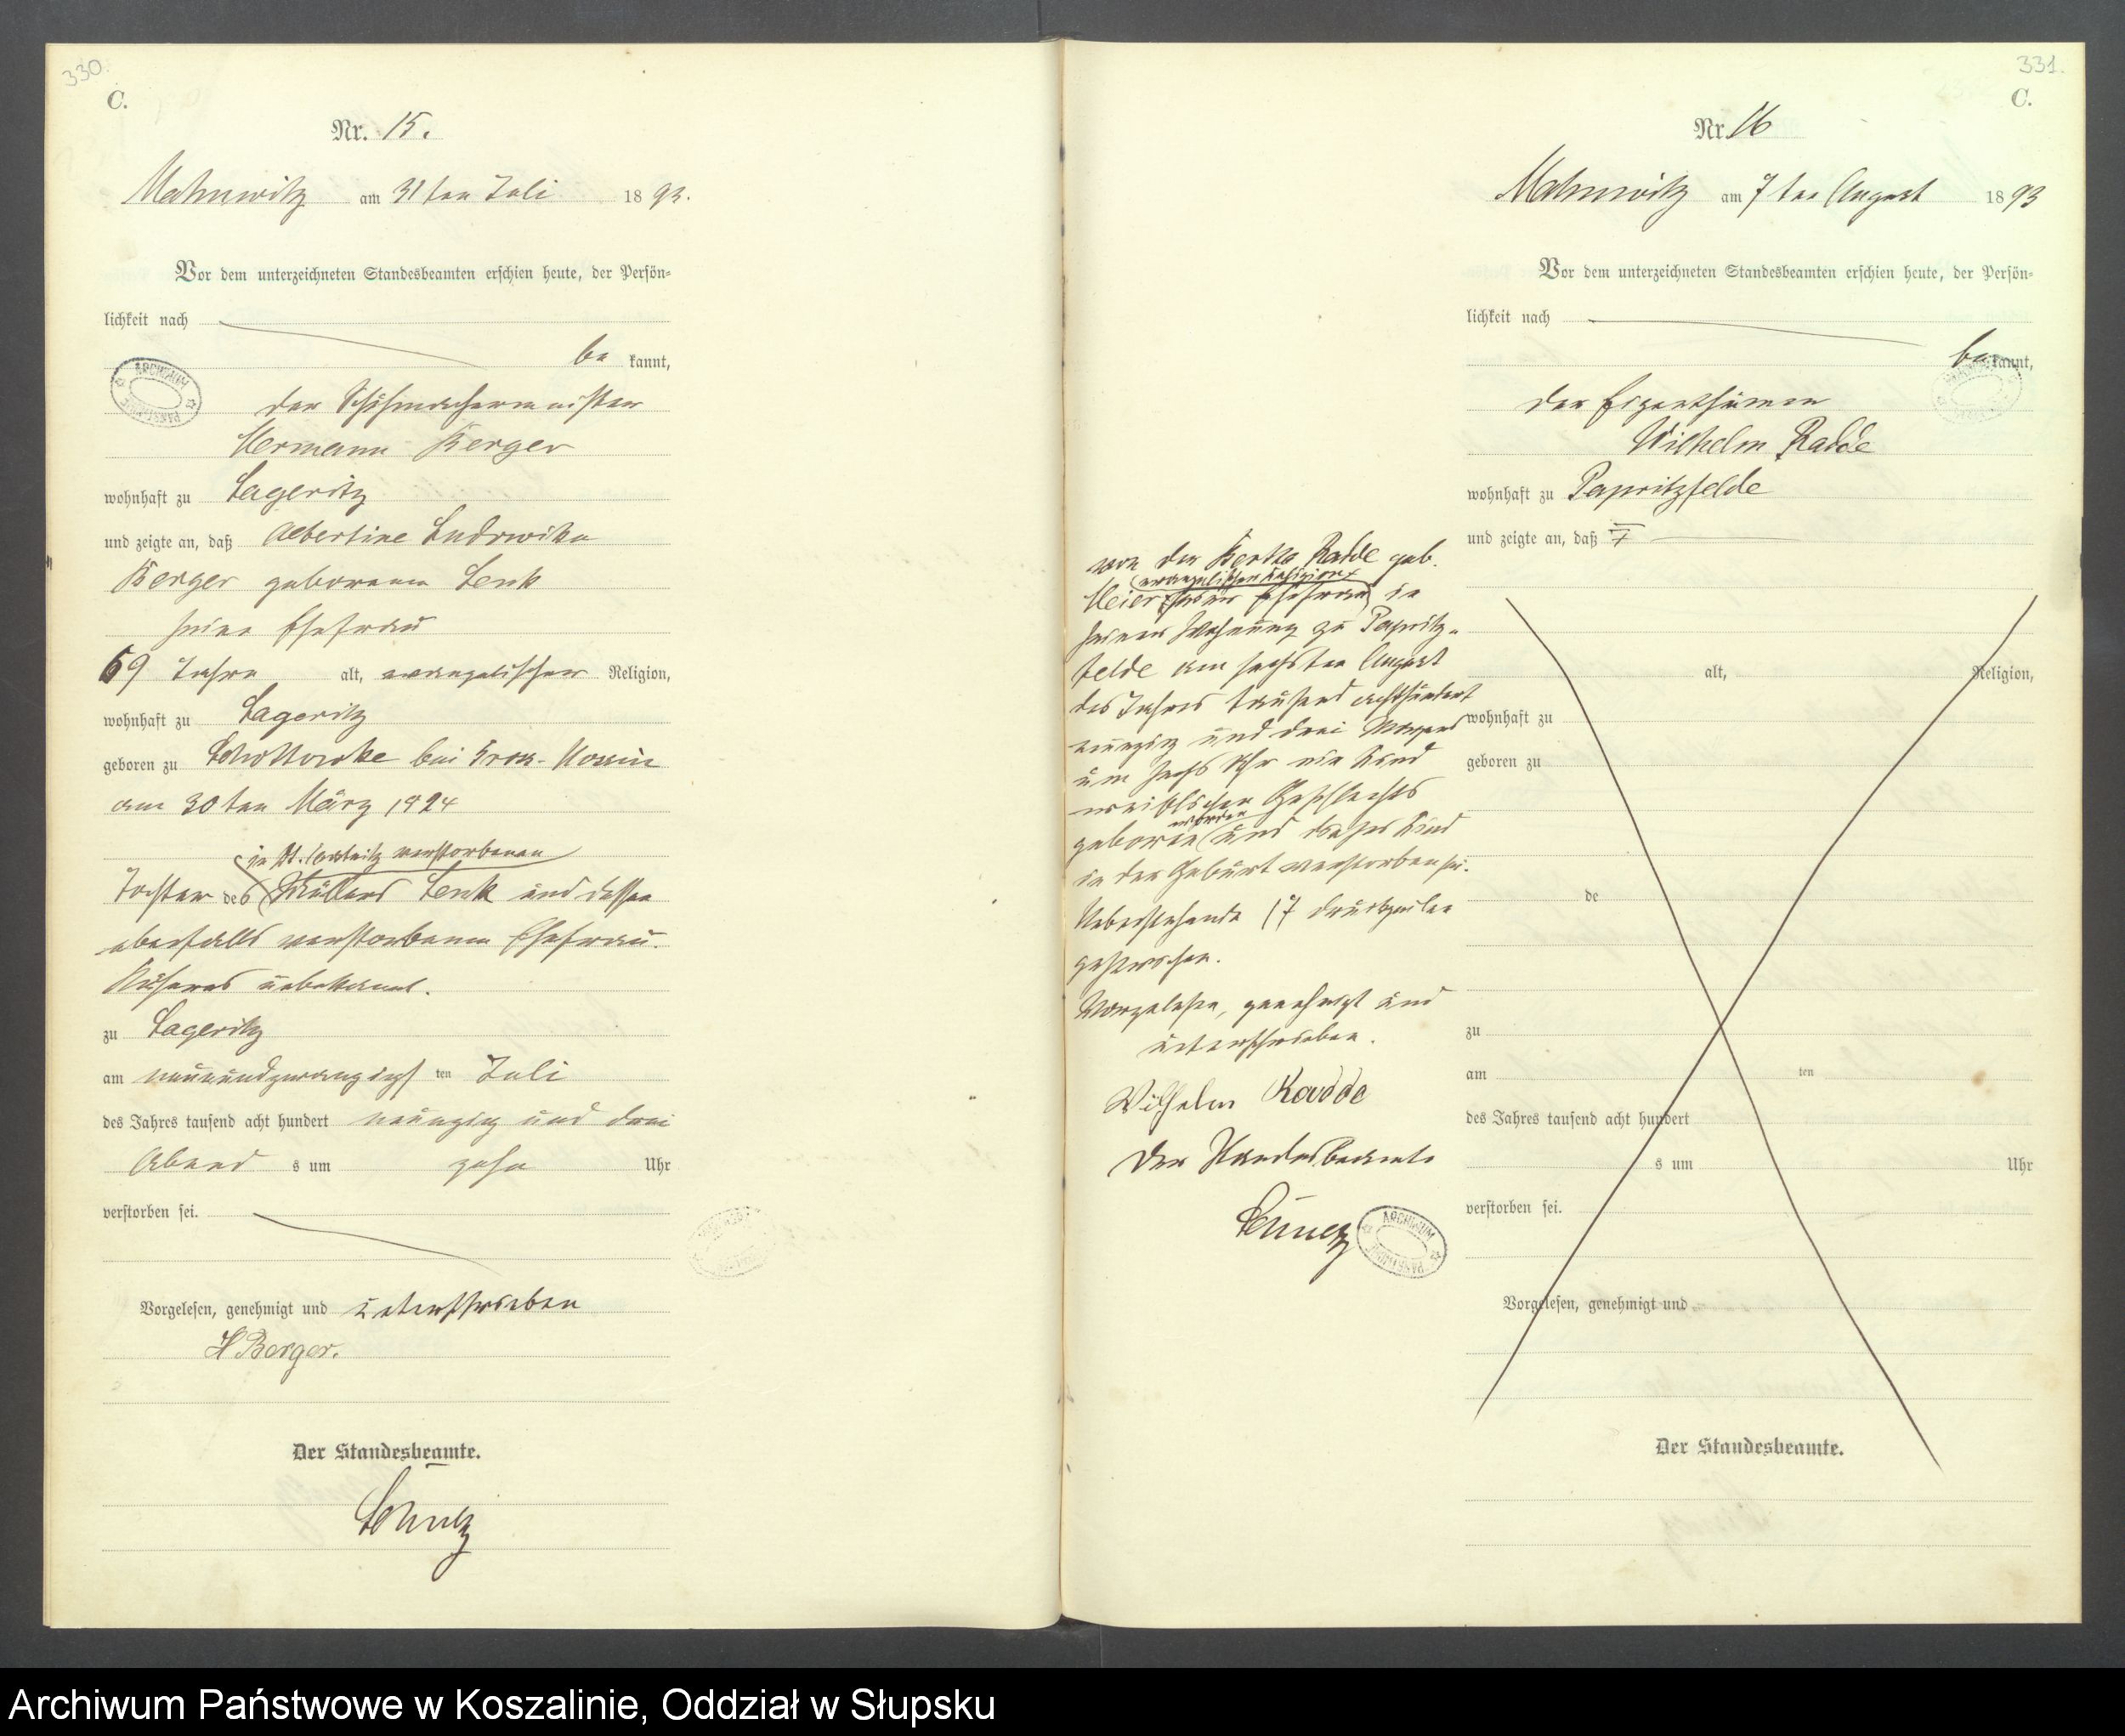 330.
C.
Nr. 15.
Mahnwitz am 31ten Juli 1893.
Vor dem unterzeichneten Standesbeamten erschien heute, der Persön=
lichkeit nach
be kannt,
der Schuhmachermeister
Hermann Berger
wohnhaft zu Lageritz
und zeigte an, daß Albertine Ludowika
Berger geborenen Lenk
seine Ehefrau
69 Jahre alt, evangelischer Religion,
wohnhaft zu Lageritz
geboren zu bei Gross-Nossin
am 30ten März 1824
in verstorbenen
Tochter des Müllers Lenk und dessen
ebenfalls verstorbenen Ehefrau.
Näheres unbekannt.
zu Lageritz
am neunundzwanzigsten Juli
des Jahres tausend acht hundert neunzig und drei
Abends um zehn Uhr
verstorben sei.
Vorgelesen, genehmigt und unterschrieben
H Berger.
Der Standesbeamte.
331.
C.
Nr. 16
Mahnwitz am 7ten August 1893
Vor dem unterzeichneten Standesbeamten erschien heute, der Persön=
lichkeit nach
bekannt,
der Eigenthümer
Wilhelm Radde
wohnhaft zu Papritzfelde
und zeigte an, daß
von der Radde geb.
evangelischer Religion
Meier seiner Ehefrau in
seiner Wohnung zu Papritz-
felde am sechsten August
des Jahres tausend achthundert
neunzig und drei Morgens
um sechs Uhr ein Kind
weiblichen Geschlechts
worden
geboren und dieses Kind
in der Geburt verstorben sei.
Vorstehende 17 Druckzeilen
gestrichen.
Vorgelesen, genehmigt und
unterschrieben.
Wilhelm Radde
Der Standesbeamte
alt, Religion,
wohnhaft zu
geboren zu
de
zu
am ten
des Jahres tausend acht hundert
s um Uhr
verstorben sei.
Vorgelesen, genehmigt und
Der Standesbeamte.
ARCHIWUM PAŃSTWOWE
Archiwum Państwowe w Koszalinie, Oddział w Słupsku